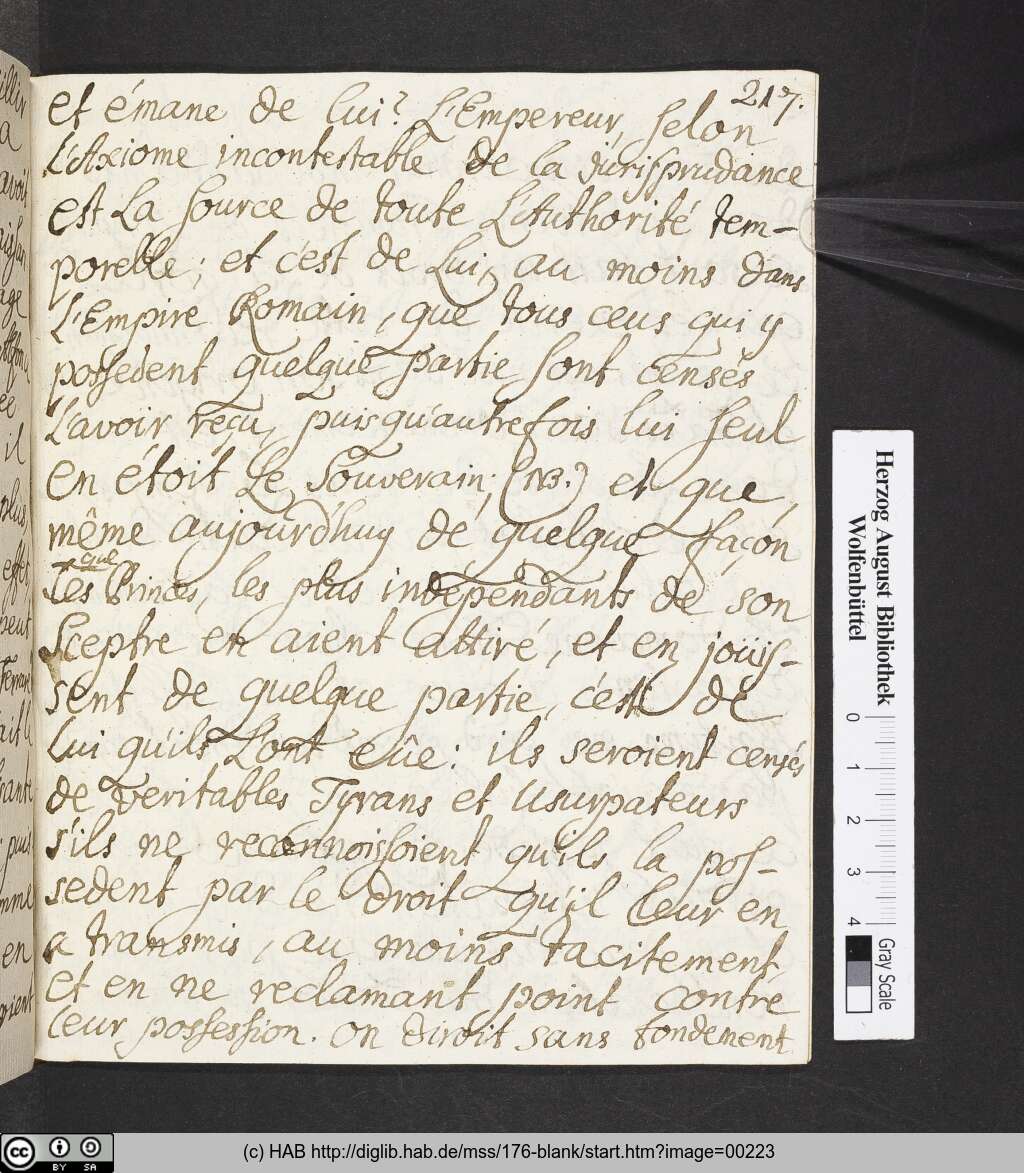 217.
et émane de lui? L'Empereur, selon
L'Axiome incontestable de la Jurisprudance
est La source de toute L'Authorité tem-
porelle; et c'est de Lui, au moins dans
L'Empire Romain, que tous ceus qui y
possedent quelque partie sont censés
L'avoir reçu, puisqu'autrefois lui seul
en étoit Le Souverain; (NB.) et que,
même aujourd'huy de quelque façon
que
les Princes, les plus indépendants de son
Sceptre en aient attiré, et en jouïs-
sent de quelque partie, c'est de
Lui qu'ils L'ont eûe: ils seroient censés
de veritables Tyrans et Usurpateurs
s'ils ne reconnoissoient qu'ils la pos-
sedent par le droit qu'il leur en
a transmis, au moins tacitement,
et en ne reclamant point contre
leur possession. on diroit sans fondement
il
plus,
effet
peut
en
Herzog August Bibliothek
Wolfenbüttel
0 1 2 3 4
Gray Scale
cc BY SA
(c) HAB http://diglib.hab.de/mss/176-blank/start.htm?image=00223